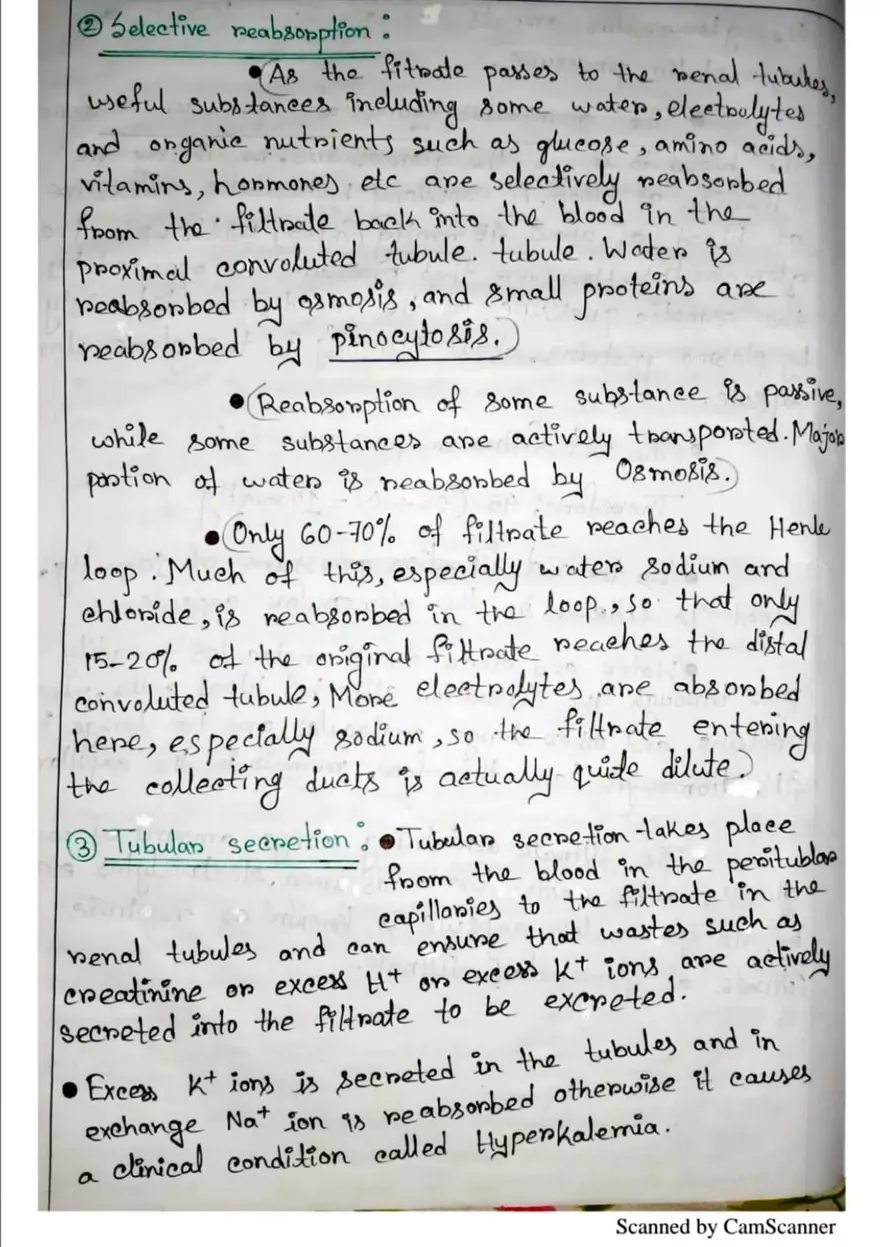 ② Selective reabsorption :
• (As the filtrate passes to the renal tubules,
useful substances including some water, electrolytes
and organic nutrients such as glucose, amino acids,
vitamins, hormones etc are selectively reabsorbed
from the filtrate back into the blood in the
proximal convoluted tubule. tubule. Water is
reabsorbed by osmosis, and small proteins are
reabsorbed by pinocytosis.)
• (Reabsorption of some substance is passive,
while some substances are actively transported. Major
portion of water is reabsorbed by Osmosis.)
• (Only 60-70% of filtrate reaches the Henle
loop. Much of this, especially water sodium and
chloride, is reabsorbed in the loop, so that only
15-20% of the original filtrate reaches the distal
convoluted tubule, More electrolytes are absorbed
here, especially sodium, so the filtrate entering
the collecting ducts is actually quide dilute.)
③ Tubular secretion : • Tubular secretion takes place
from the blood in the peritublar
capillaries to the filtrate in the
renal tubules and can ensure that wastes such as
creatinine or excess H+ or excess K+ ions are actively
secreted into the filtrate to be excreted.
• Excess K+ ions is secreted in the tubules and in
exchange Na+ ion is reabsorbed otherwise it causes
a clinical condition called Hyperkalemia.
Scanned by CamScanner